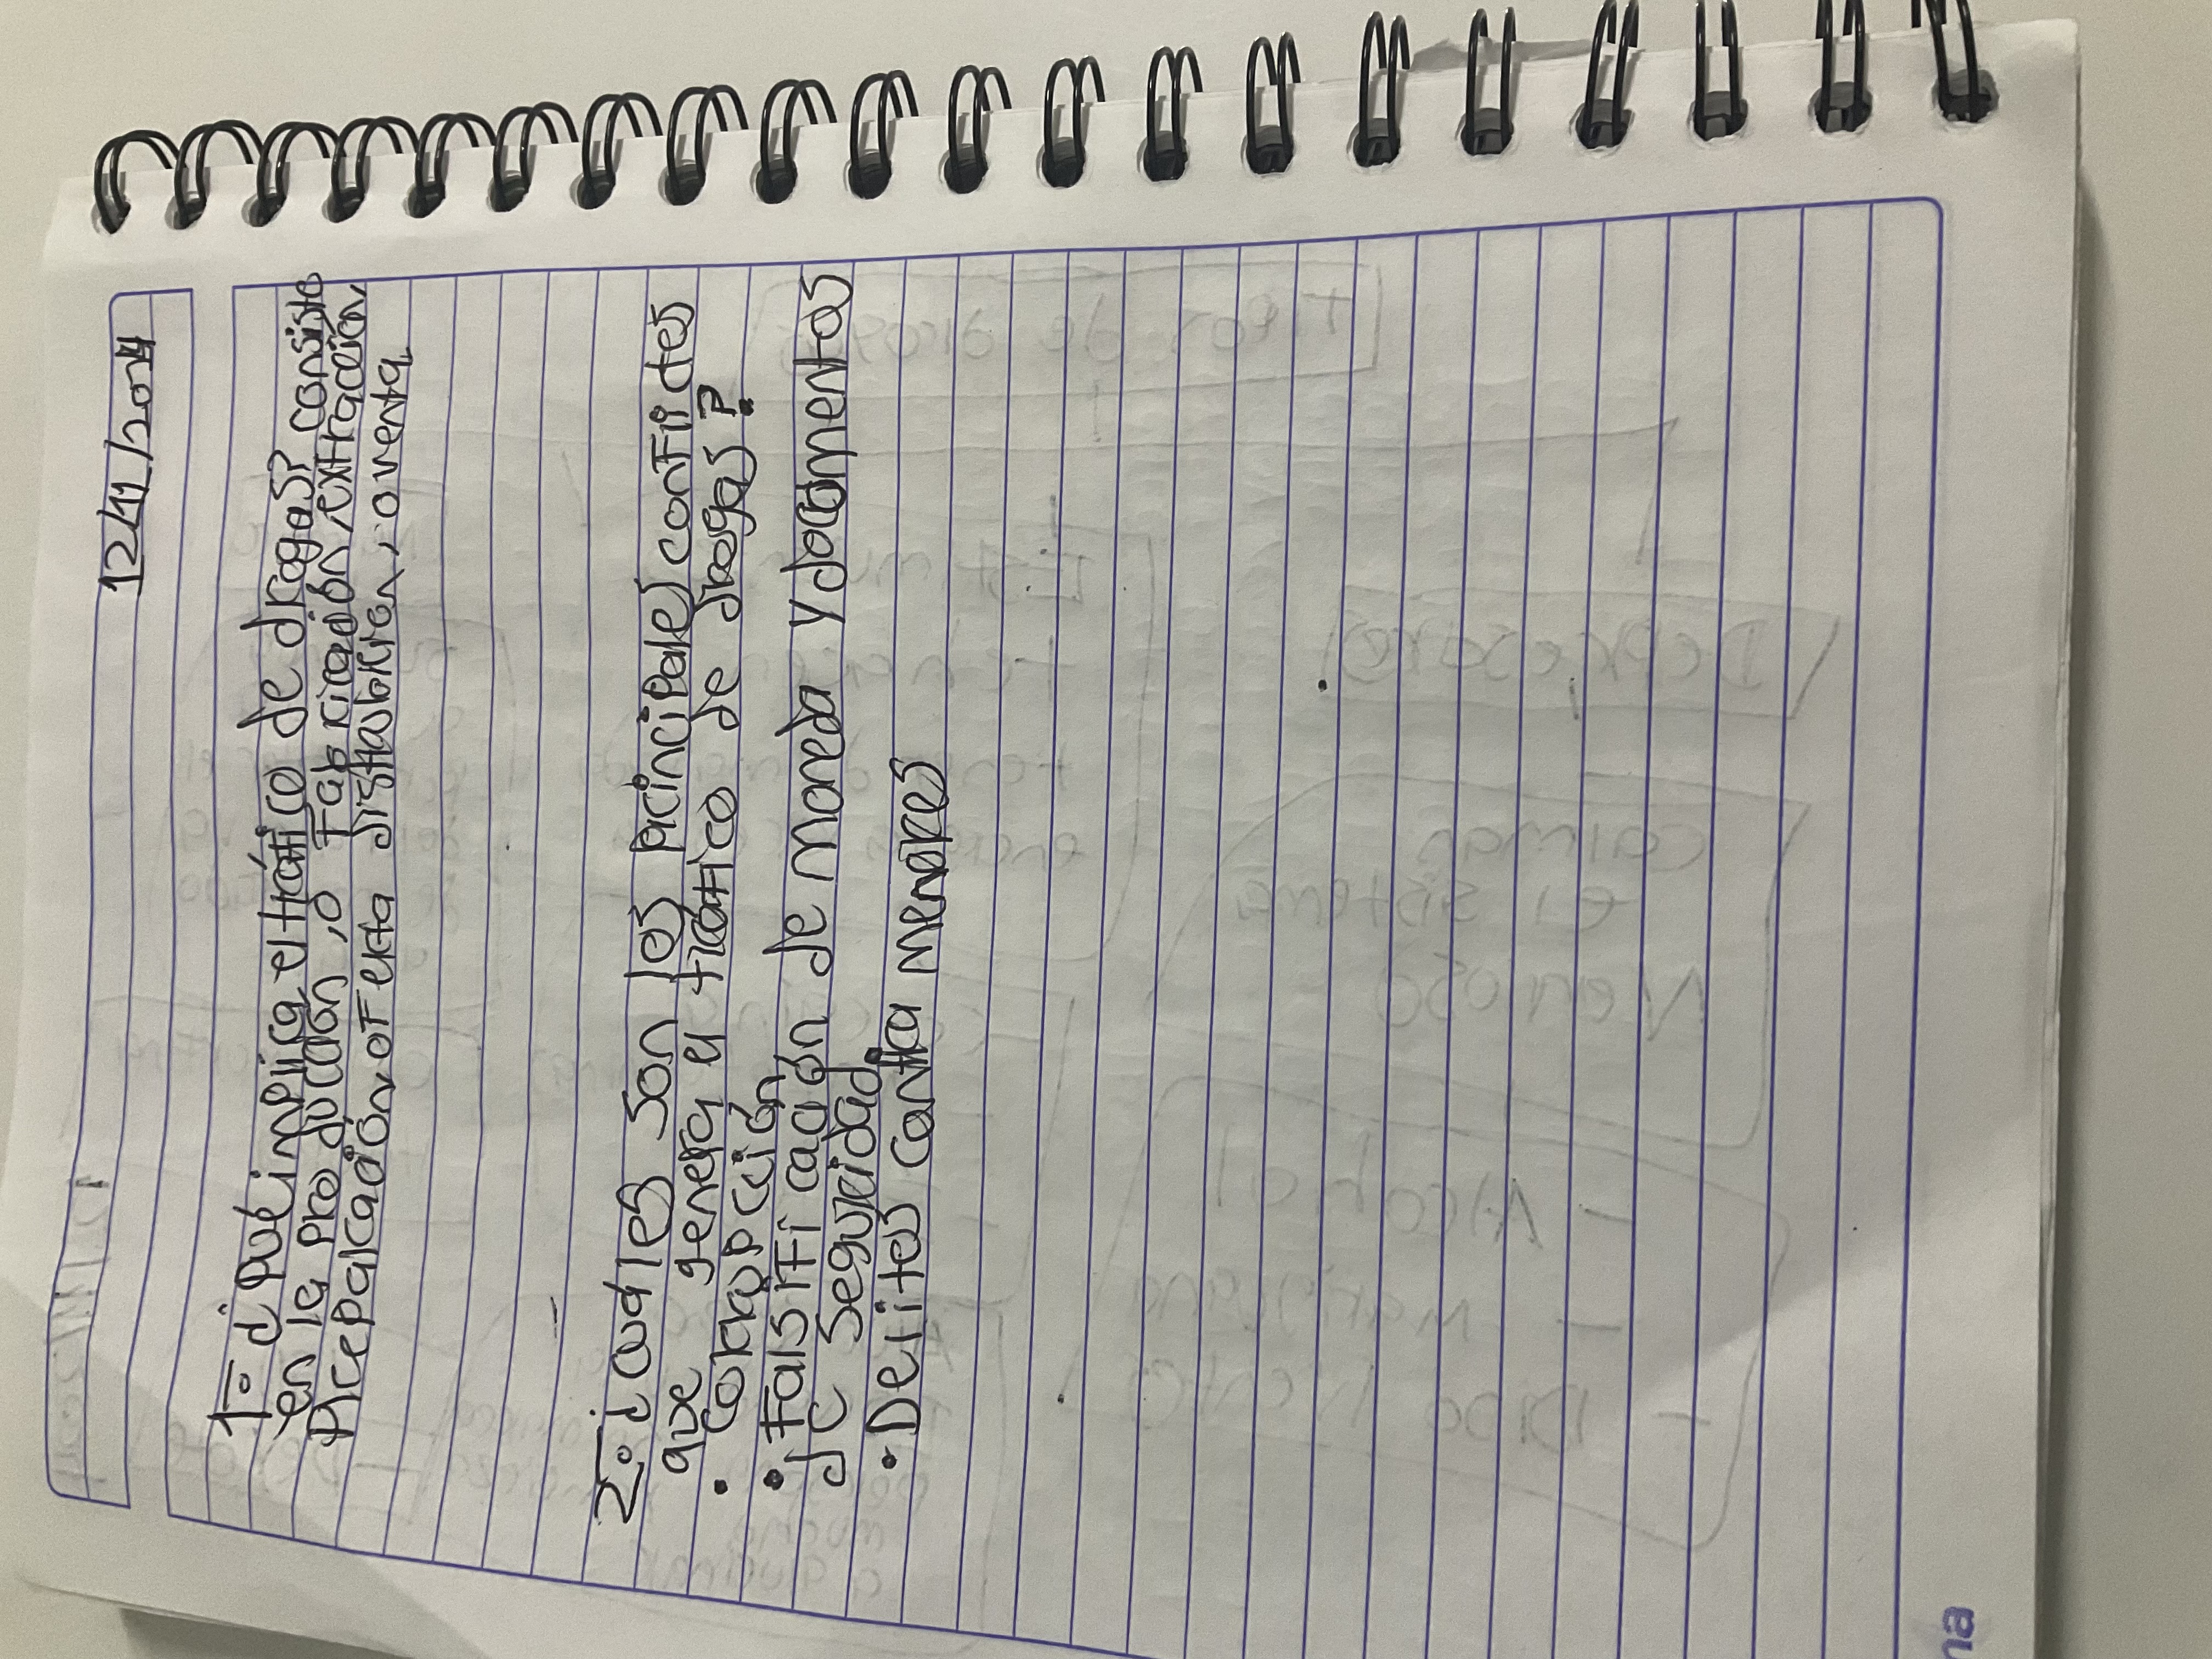 12/11/2024
1=° ¿ Qué implica el tráfico de drogas? consiste
en la producción, o fabricación, extracción
preparación, oferta distribución, o venta.
2=° ¿ cuales son los principales conflictos
que genera el tráfico de drogas?
• Corrupción
• Falsificación de moneda y documentos
de seguridad.
• Delitos contra menores